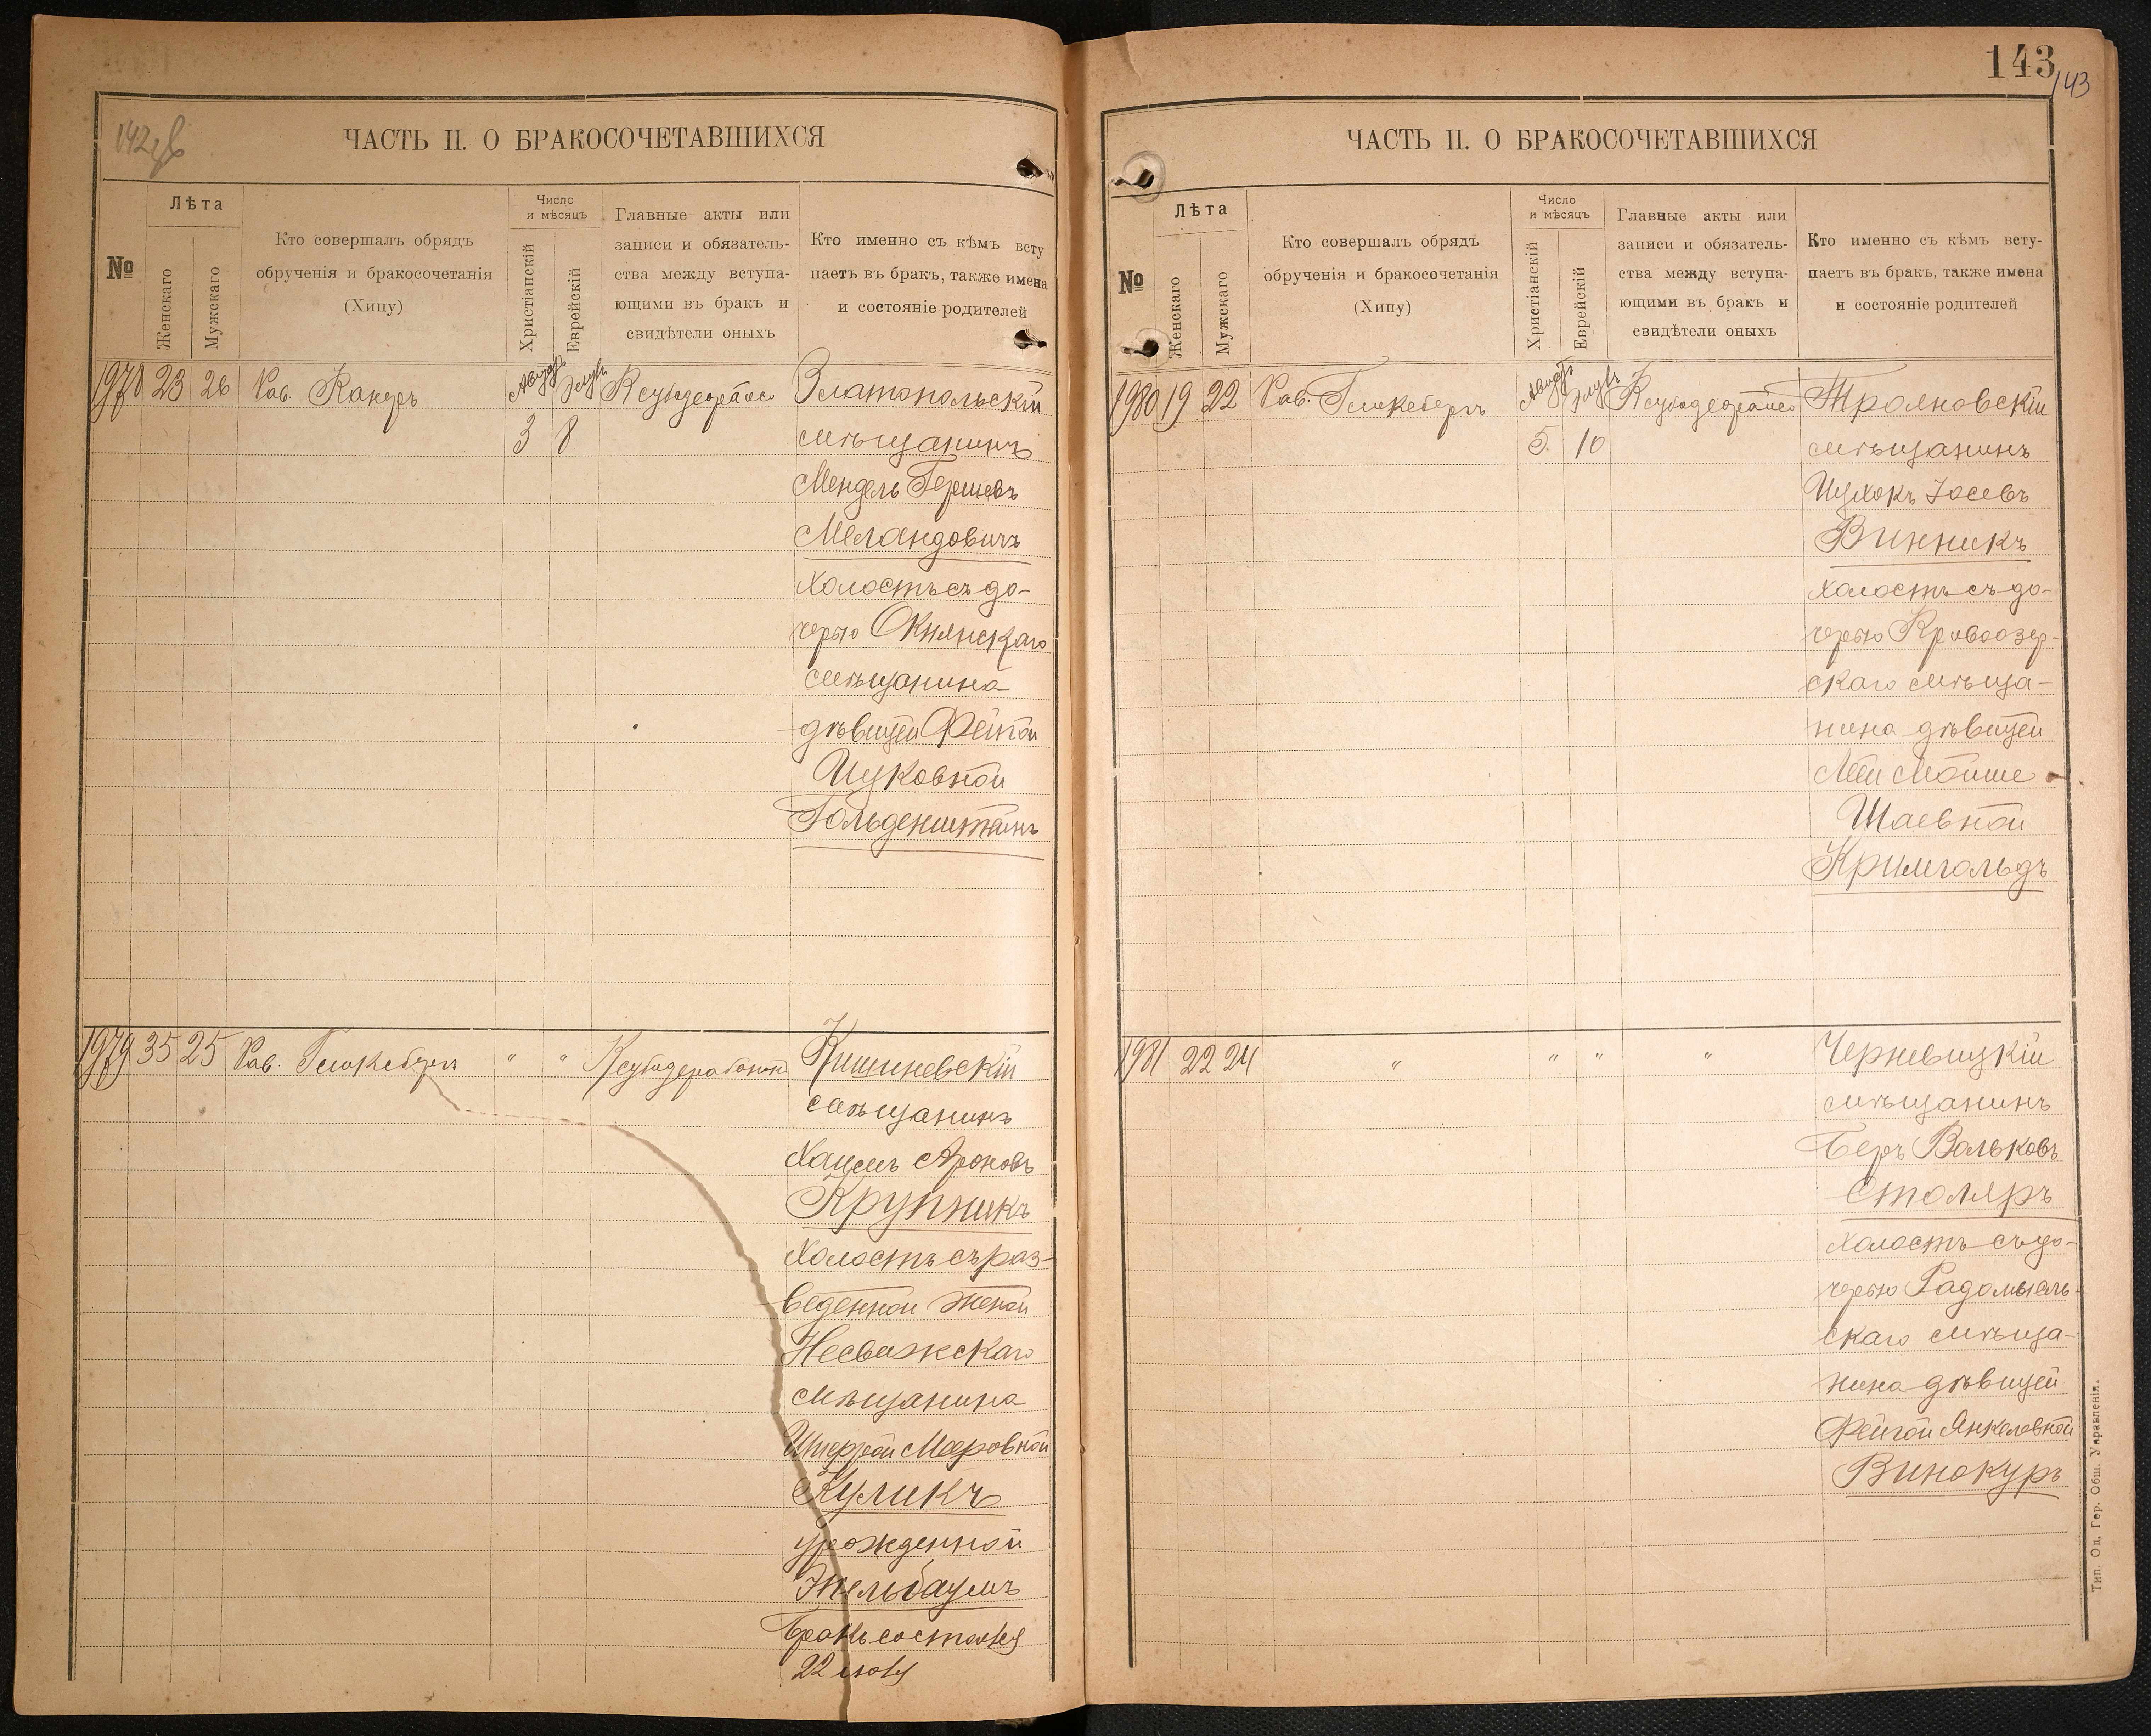 142 зв
ЧАСТЬ II. О БРАКОСОЧЕТАВШИХСЯ
№
Лѣта
Женскаго
Мужскаго
Кто совершалъ обрядъ
обрученія и бракосочетанія
(Хипу)
Число
и мѣсяцъ
Христіанскій
Еврейскій
Главные акты или
записи и обязатель-
ства между вступа-
ющими въ бракъ и
свидѣтели оныхъ
Кто именно съ кѣмъ всту
паетъ въ бракъ, также имена
и состояніе родителей
1978 23 26 Рав. Канеръ Август Элулъ Златопольскій
3 8 мѣщанинъ
Мендель Гершевъ
Меландовичъ
холостъ съ до-
черью Окнянскаго
мѣщанина
дѣвицей Фейгой
Ицковной
Гольденштейнъ
1979 35 25 Рав. " " Кишиневскій
мѣщанинъ
Хаимъ Ароновъ
Крупникъ
Холостъ съ раз-
веденной женой
Несвижскаго
мѣщанина
Мееровной
Куликъ
урожденной
Бракъ состоялся
22
143
143
ЧАСТЬ II. О БРАКОСОЧЕТАВШИХСЯ
№
Лѣта
Женскаго
Мужскаго
Кто совершалъ обрядъ
обрученія и бракосочетанія
(Хипу)
Число
и мѣсяцъ
Христіанскій
Еврейскій
Главные акты или
записи и обязатель-
ства между вступа-
ющими въ бракъ и
свидѣтели оныхъ
Кто именно съ кѣмъ всту-
паетъ въ бракъ, также имена
и состояніе родителей
1980 19 22 Рав. Август Элулъ Трояновскій
5 10 мѣщанинъ
Ицхокъ Іосевъ
Винникъ
холостъ съ до-
черью Кривоозер-
скаго мѣща-
нина дѣвицей
Мойше
Шаевной
Кримгольдъ
1981 22 24 " " " " Черневицкій
мѣщанинъ
Беръ Вольковъ
Столяръ
холостъ съ до-
черью Радомысль-
скаго мѣща-
нина дѣвицей
Фейгой Янкелевной
Винокуръ
Тип. Од. Гор. Общ. Управленія.